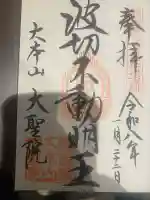 奉拝
令和八年
一月二十三日
波切不動明王
大本山 大聖院